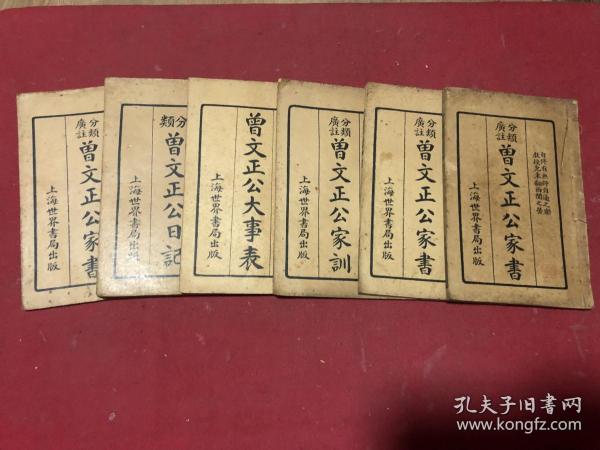 分類
廣註
曾文正公家書
自修有無師自通之樂
教授免東翻西閱之勞
上海世界書局出版
分類
廣註
曾文正公家書
上海世界書局出版
分類
廣註
曾文正公家訓
上海世界書局出版
曾文正公大事表
上海世界書局出版
分類
曾文正公日記
上海世界書局出版
分類
廣註
曾文正公家書
上海世界書局出版
孔夫子旧书网
www.kongfz.com